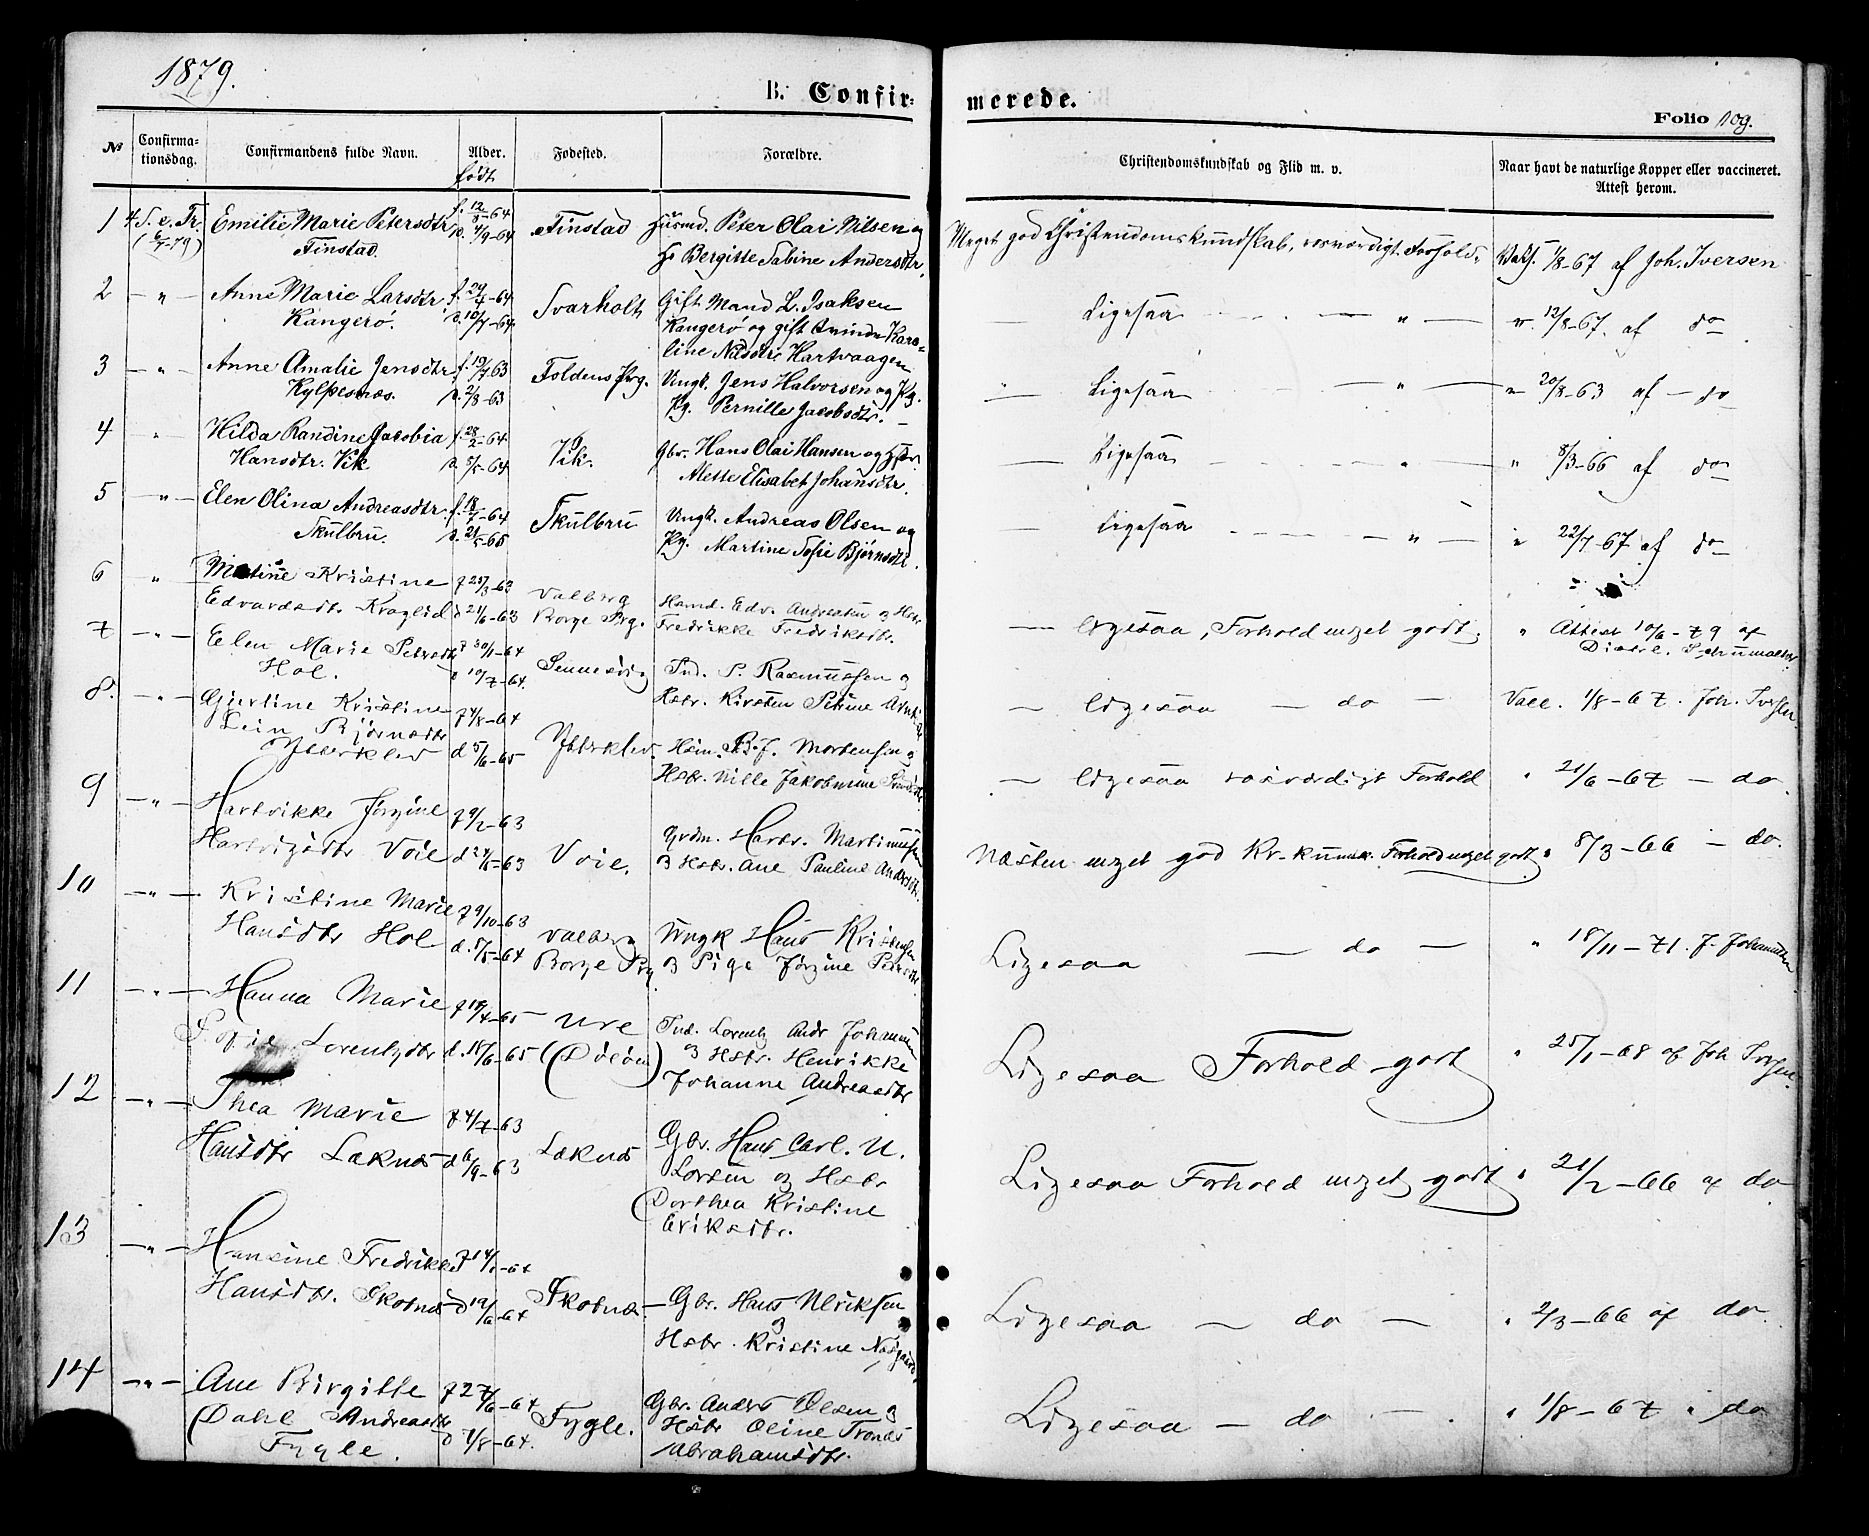 1879.
B. Confir-
merede.
Folio 109.
№
Confirma-
tionsdag.
Confirmandens fulde Navn.
Alder.
født
Fødested.
Forældre.
Christendomskundskab og Flid m. v.
Naar havt de naturlige Kopper eller vaccineret.
Attest herom.
1 4 S. e. Tr. Emilie Marie Petersdtr f. 12/8-64 Finstad Husmd. Peter Olai Nilsen og
(6/7-79) Finstad. d. 4/9-64 H Bergitte Sabine Andersdtr.
Meget god Christendomskundskab, rosværdigt Forhold. Vaks. 1/8-67 af Joh. Iversen
2 -"- Anne Marie Larsdtr f. 29/4-64 Svarholt Gift Mand L. Isaksen
Kangerö. d. 10/7-64 Kangerö og gift Kvinde Karo-
line Nilsdtr Hartvaagen
Ligesaa - " - v. 12/8-67. af do
3 -"- Anne Amalie Jensdtr f. 19/7 63 Foldens Prg. Ungk. Jens Halvorsen og Pg.
Kylpesnæs. d. 2/8-63 Pg. Pernille Jacobsdtr. -
" Ligesaa - " - " 20/8-63 af - do
4 " Hilda Randine Jacobia f. 28/2-64 Vik. Gbr. Hans Olai Hansen og Hstr.
Hansdtr. Vik d. 5/5-64 Mette Elisabet Johansdtr.
- Ligesaa - " - " 8/3-66 af do
5 -"- Elen Olina Andreasdtr f. 18/7-64 Skulbru Ungk. Andreas Olsen og
Skulbru. d. 21/5-65 Pg. Martine Sofie Bjørnsdtr.
- Ligesaa - " - " 22/7-67 af do
6 " Kristine f 23/3-63 Valberg Hsmd. Edv. Andreasen og Hstr.
Edvardsdtr Kroglid d 21/6-63 Borge Prg. Fredrikke Fredriksdtr.
- Ligesaa, Forhold meget godt. " Attest 10/6-79 af
Distrl. Schumacher
7 -"- Elen Marie Petersdtr f 30/1-64 Sennesvig Ind. P. Rasmussen og
Hol. d 10/7-64. Hstr. Kirsten Petrine
- Ligesaa - do - Vacc. 1/8-67. Joh. Iversen
8. -"- Gjertine Kristine f 4/8-64 Ytterklev. Hsm. B. J. Mortensen og
Lein Bjørnsdtr
Ytterklev d 5/6-65 Hstr. Nille Jakobmine
- Ligesaa rosværdigt Forhold " 21/6-67 - do.
9 -"- Hartvikke Jørgine f 9/2-63 Voie. Grdm. Hartv. Martinussen
Hartvigsdtr Voie d 24/5-63 og Hstr. Ane Pauline Andersdtr.
Næsten meget god Kr-kundsk. Forhold meget godt. " 8/3-66 - do.
10 -"- Kristine Marie f 9/10-63 Valberg Ungk Hans Kristensen
Hansdtr Hol d. 5/5-64 Borge Prg og Pige Jørgine Pedersdtr
Ligesaa - do - " 18/11-71. J. Johannesen
11 -"- Hanna Marie f 18/4-65 Ure Ind. Lorentz Andr Johannesen
Sofie Lorentzdtr d. 18/6-65 og Hstr. Henrikke
Johanne Andreasdtr
Ligesaa Forhold godt " 25/1-68 af Joh Iversen.
12 -"- Thea Marie f 4/7-63 Læknæs Gbr. Hans Carl. N.
Hansdtr Læknæs d 6/9-63 Larsen og Hstr
Dorthea Kristine
Eriksdtr.
Ligesaa Forhold meget godt " 21/2-66 af do
13 -"- Hansine Fredrikke f 14/1-64 Skotnæs Gbr. Hans Ulriksen
Hansdtr. Skotnæs d 19/6-64 og
Hstr. Kristine
Ligesaa - do - " 2/3-66 af do.
14 -"- Ane Birgitte f 27/6-64 Fygle. Gbr. Anders Olsen og
Dahl Andreasdtr d 7/8-64. Hstr Oline Tronæs
Fygle. Abrahamsdtr.
Ligesaa - do - . " 1/8-67 " do